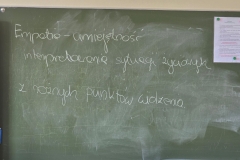 Empatia - umiejętność
interpretowania sytuacji życiowych
z różnych punktów widzenia